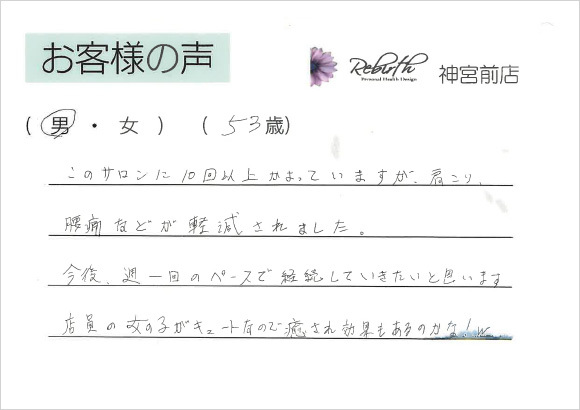 お客様の声
Rebirth
Personal Health Design
神宮前店
( 男 ・ 女 ) ( 53歳)
このサロンに10回以上かよっていますが、肩こり、
腰痛などが軽減されました。
今後、週一回のペースで継続していきたいと思います
店員の女の子がキュートなので癒され効果もあるのかな!w